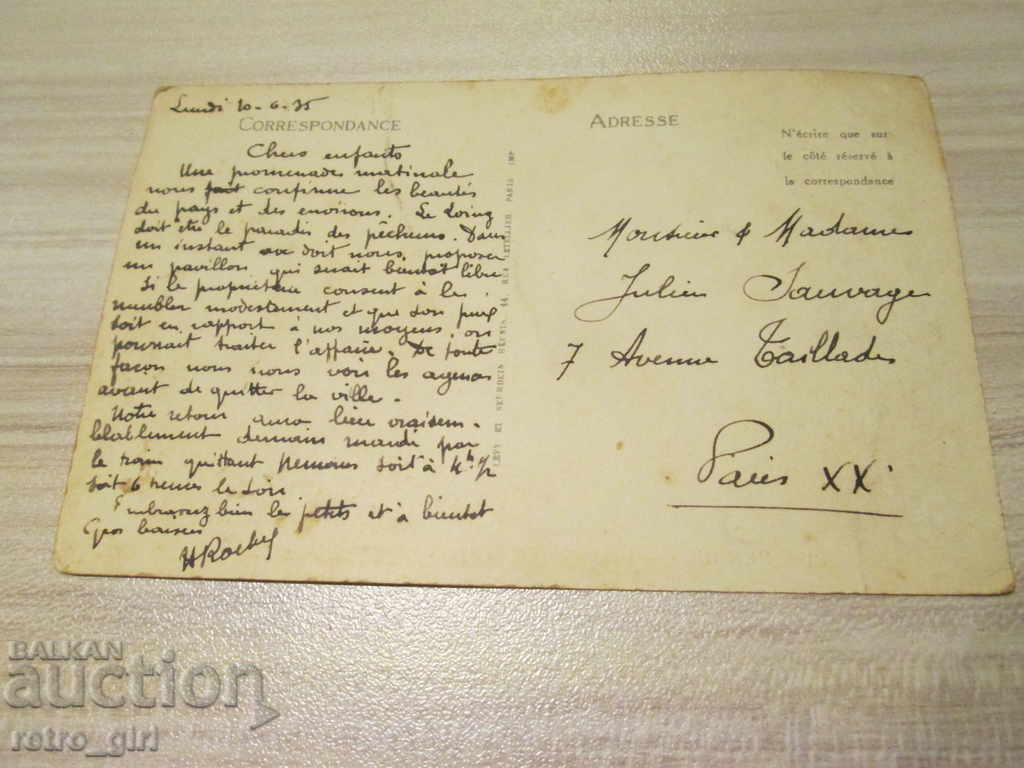 Lundi 10-6-35
CORRESPONDANCE
Chers enfants
Une promenades matinale
nous fait confirme les beautés
du pays et des environs. Le Loing
doit être le paradis des pêcheurs. Dans
un instant on doit nous proposer
un pavillon qui serait bientôt libre
Si le propriétaire consent à le
meubler modestement et que son prix
soit en rapport à nos moyens, on
pourrait traiter l'affaire. De toute
façon nous nous voir les agences
avant de quitter la ville.
Notre retour aura lieu vraisem-
blablement demain mardi par
le train quittant Nemours soit à 4h 1/2
soit 6 heures le soir.
Embrassez bien les petits et à bientôt
Gros baisers
ADRESSE
N'écrire que sur
le côté réservé à
la correspondance
Monsieur & Madame
Julien Sauvage
7 Avenue Taillade
Paris XX
LEVY ET NEURDEIN REUNIS, 44, RUE LETELLIER PARIS IMP
BALKAN
auction
retro_girl